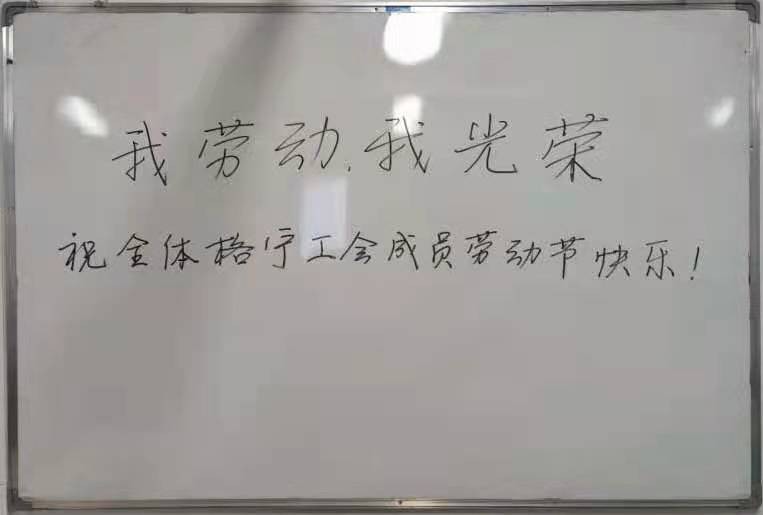 我劳动,我光荣
祝全体格宁工会成员劳动节快乐!